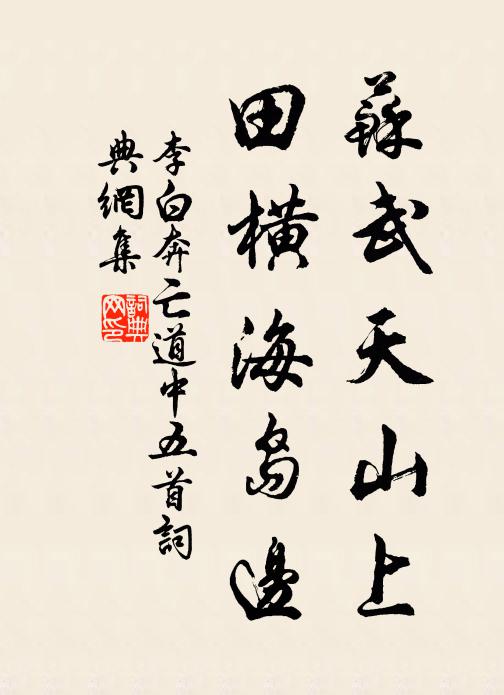 蘇武天山上
田橫海島邊
李白奔亡道中五首詞
典網集
詞典网印